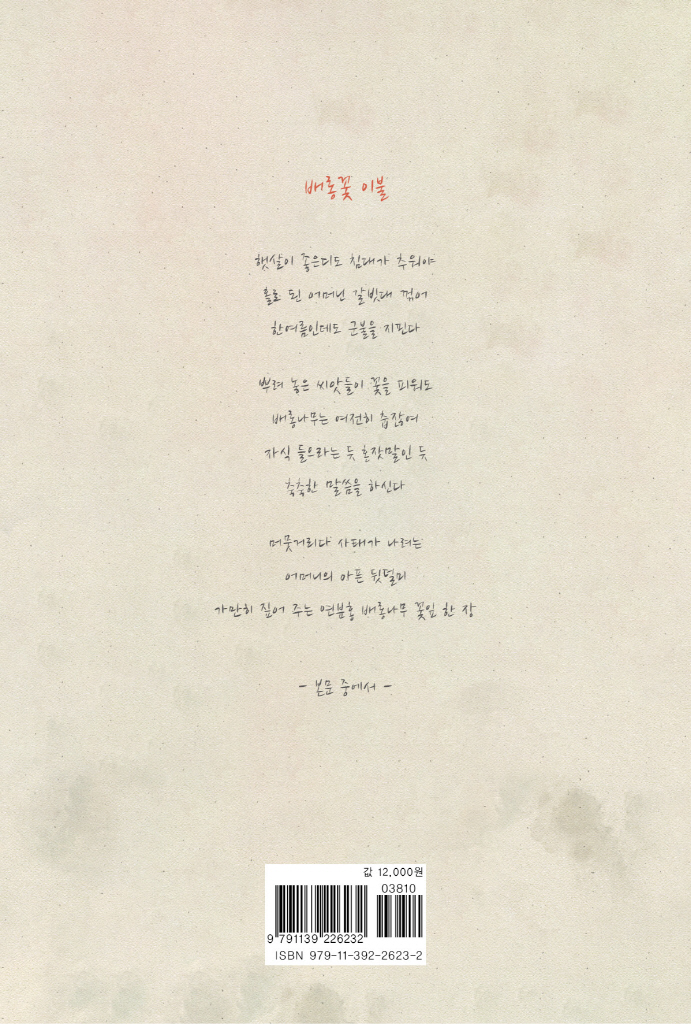 배롱꽃 이불
햇살이 좋은디도 침대가 추워야
홀로 된 어머닌 갈빗대 꺾어
한여름인데도 군불을 지핀다
뿌려 놓은 씨앗들이 꽃을 피워도
배롱나무는 여전히 춥잖여
자식 들으라는 듯 혼잣말인 듯
축축한 말씀을 하신다
머뭇거리다 사태가 나려는
어머니의 아픈 뒷덜미
가만히 짚어 주는 연분홍 배롱나무 꽃잎 한 장
- 본문 중에서 -
값 12,000원
03810
9 791139 226232
ISBN 979-11-392-2623-2